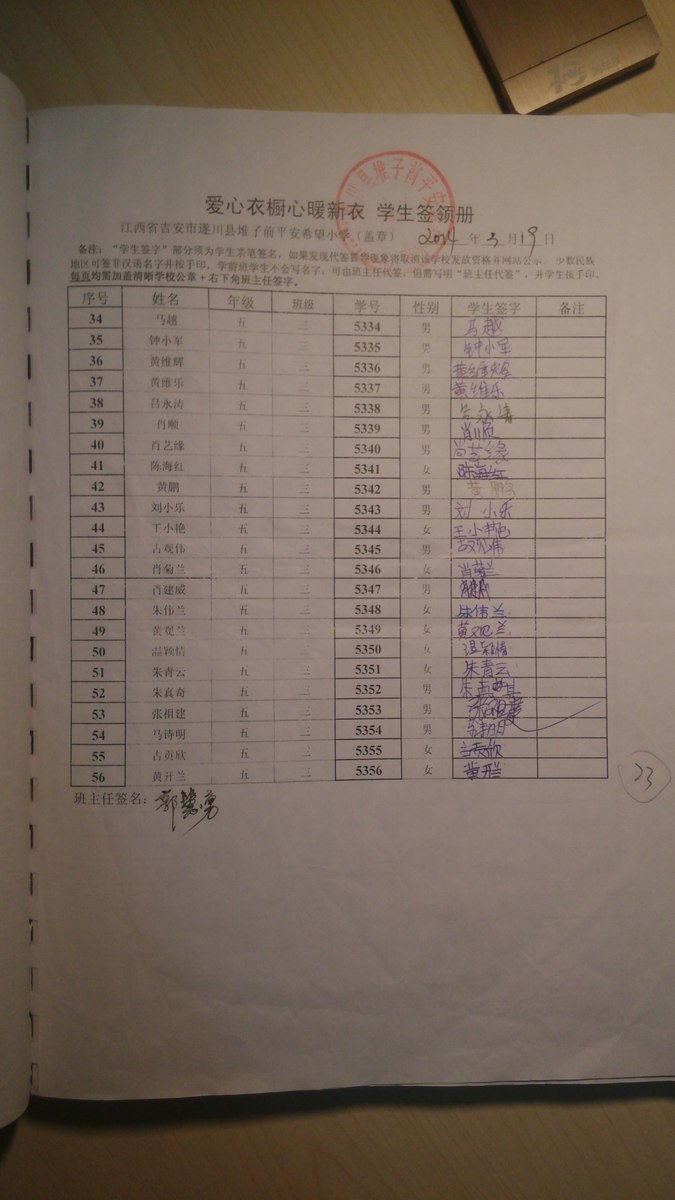 爱心衣橱心暖新衣 学生签领册
江西省吉安市遂川县堆子前平安希望小学（盖章） 2014 年 3 月 19 日
备注：“学生签字”部分须为学生亲笔签名，如果发现代签冒领现象将取消该学校发放资格并网站公示。少数民族
地区可签非汉语名字并按手印，学前班学生不会写名字，可由班主任代签，但需写明“班主任代签”，并学生按手印。
每页均需加盖清晰学校公章+右下角班主任签字。
序号 姓名 年级 班级 学号 性别 学生签字 备注
34 马越 五 三 5334 男 马越
35 钟小军 五 三 5335 男 钟小军
36 黄维辉 五 三 5336 男 黄维辉
37 黄维乐 五 三 5337 男 黄维乐
38 吕永涛 五 三 5338 男 吕永涛
39 肖顺 五 三 5339 男 肖顺
40 肖艺缘 五 三 5340 男 肖艺缘
41 陈海红 五 三 5341 女 陈海红
42 黄鹏 五 三 5342 男 黄鹏
43 刘小乐 五 三 5343 男 刘小乐
44 王小艳 五 三 5344 女 王小艳
45 古观伟 五 三 5345 男 古观伟
46 肖菊兰 五 三 5346 女 肖菊兰
47 肖建威 五 三 5347 男
48 朱伟兰 五 三 5348 女 朱伟兰
49 黄观兰 五 三 5349 女 黄观兰
50 温颖情 五 三 5350 女 温颖情
51 朱青云 五 三 5351 女 朱青云
52 朱真奇 五 三 5352 男 朱真奇
53 张祖建 五 三 5353 男 张祖建
54 马诗明 五 三 5354 男
55 古贡欣 五 三 5355 女 古贡欣
56 黄开兰 五 三 5356 女 黄开兰
23
班主任签名：郭慧勇